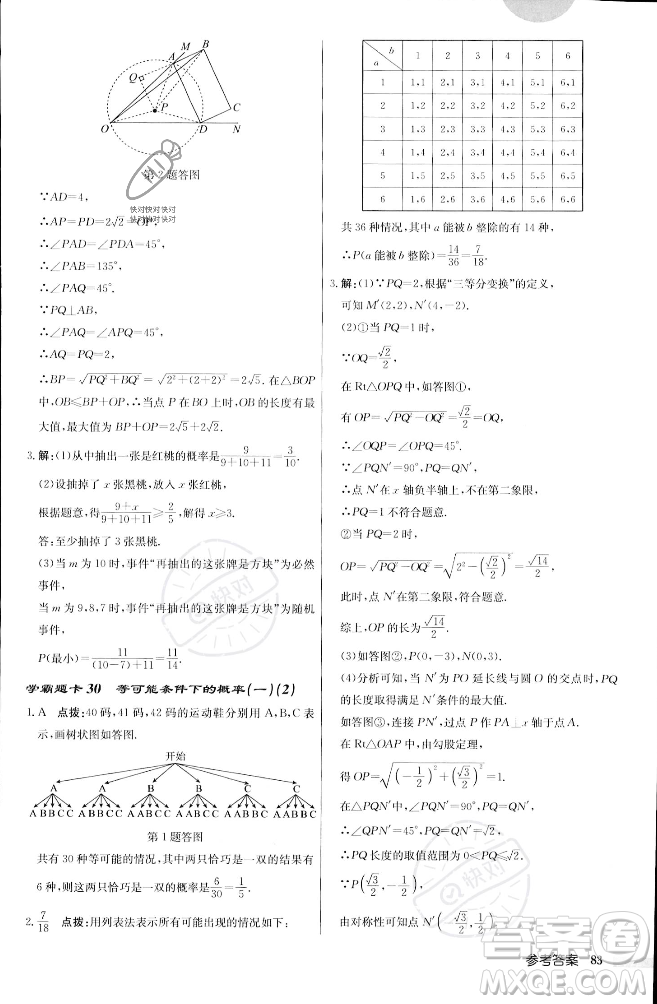 M
B
A
Q
P
C
O
D
N
第2题答图
快对快对快对
快对快对快对
∵AD=4,
∴AP=PD=2√2=OP,
∴∠PAD=∠PDA=45°,
∴∠PAQ=45°.
∵PQ⊥AB,
∴∠APQ=∠PAQ=45°,
∴AQ=PQ=2,
∴BP=√(PQ²+BQ²)=√(2²+(2+2)²)=2√5. 在△BOP
中,OB≤BP+OP,∴当点 P 在 BO 上时,OB 的长度有最
大值,最大值为 BP+OP=2√5+2√2.
3. 解:(1)从中抽出一张是红桃的概率是9/(9+10+11)=3/10.
(2)设抽掉了 x 张黑桃,放入 x 张红桃,
根据题意,得(9+x)/(9+10+11)≥2/5,解得 x≥3.
答:至少抽掉了 3 张黑桃.
(3)当 m 为 10 时,事件“再抽出的这张牌是方块”为必然
事件,
当 m 为 9,8,7 时,事件“再抽出的这张牌是方块”为随机
事件,
P(最小)=11/((10-7)+11)=11/14.
学霸题卡30 等可能条件下的概率(一)(2)
1. A 点拨:40 码,41 码,42 码的运动鞋分别用 A,B,C 表
示,画树状图如答图.
开始
A A B B C C
ABBCC ABBCC AABCC AABCC AABBC AABBC
第1题答图
共有 30 种等可能的情况,其中两只恰巧是一双的结果有
6 种,则这两只恰巧是一双的概率是6/30=1/5.
2. 7/18 点拨:用列表法表示所有可能出现的情况如下:
b
a
1 2 3 4 5 6
1 1,1 2,1 3,1 4,1 5,1 6,1
2 1,2 2,2 3,2 4,2 5,2 6,2
3 1,3 2,3 3,3 4,3 5,3 6,3
4 1,4 2,4 3,4 4,4 5,4 6,4
5 1,5 2,5 3,5 4,5 5,5 6,5
6 1,6 2,6 3,6 4,6 5,6 6,6
共 36 种情况,其中 a 能被 b 整除的有 14 种,
∴P(a 能被 b 整除)=14/36=7/18.
3. 解:(1)∵PQ=2,根据“三等分变换”的定义,
可知 M′(2,2),N′(4,-2).
(2)①当 PQ=1 时,
∵OQ=√2/2,
在 Rt△OPQ 中,如答图①,
有 OP=√(PQ²-OQ²)=√2/2=OQ,
∴∠OQP=∠OPQ=45°.
∵∠PQN′=90°,PQ=QN′,
∴点 N′在 x 轴负半轴上,不在第二象限,
∴PQ=1 不符合题意.
②当 PQ=2 时,
OP=√(PQ²-OQ²)=√(2²-(√2/2)²)=√14/2.
此时,点 N′在第二象限,符合题意.
综上,OP 的长为√14/2.
(3)如答图②,P(0,-3),N′(0,3).
(4)分析可知,当 N′为 PO 延长线与圆 O 的交点时,PQ
的长度取得满足 N′条件的最大值.
如答图③,连接 PN′,过点 P 作 PA⊥x 轴于点 A.
在 Rt△OAP 中,由勾股定理,
得 OP=√((-1/2)²+(√3/2)²)=1.
在△PQN′中,PQ=QN′,∠PQN′=90°,
∴∠QPN′=45°,PQ=√2,
∴PQ 长度的取值范围为 0<PQ≤√2.
∵P(√3/2,-1/2),
由对称性可知点 N′(-√3/2,1/2).
快对
快对
答案圈
MXQE.COM
参考答案 83